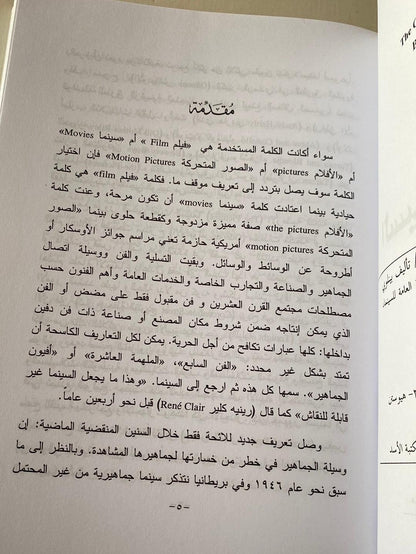 مُقدِّمة
سواء أكانت الكلمة المستخدمة هي «فيلم Film» أم «سينما Movies»
أم «الأفلام pictures» أم «الصور المتحركة Motion Pictures» فإن اختيار
الكلمة سوف يصل بتردد إلى تعريف موقف ما. فكلمة «فيلم film» هي كلمة
حيادية بينما اعتادت كلمة «سينما movies» أن تكون مرحة، وعنت كلمة
«الأفلام the pictures» صفة مميزة مزدوجة وكقطعة حلوى بينما «الصور
المتحركة motion pictures» أمريكية حازمة تعني مراسم جوائز الأوسكار أو
أطروحة عن الوسائط والوسائل. وبقيت التسلية والفن ووسيلة اتصال
الجماهير والصناعة والتجارب الخاصة والخدمات العامة وأهم الفنون حسب
مصطلحات مجتمع القرن العشرين و فن مقبول فقط على مضض أو الفن
الذي يمكن إنتاجه ضمن شروط مكان المصنع أو صناعة ذات فن دفين
بداخلها: كلها عبارات تكافح من أجل الحرية. يمكن لكل التعاريف الكاسحة أن
تمتد بشكل غير محدد: «الفن السابع»، «الملهمة العاشرة» أو «أفيون
الجماهير». سمها كل هذه ثم ارجع إلى السينما. «وهذا ما يجعل السينما غير
قابلة للنقاش» كما قال (رينيه كلير René Clair) قبل نحو أربعين عاماً.
وصل تعريف جديد للائحة فقط خلال السنين المنقضية الماضية: إن
وسيلة الجماهير في خطر من خسارتها لجماهيرها المشاهدة. وبالنظر إلى ما
سبق نحو عام ١٩٤٦ وفي بريطانيا نتذكر سينما جماهيرية من غير المحتمل
-٥-
The
تأليف
العامة للسينما
هيوستن
مكتبة الأسد